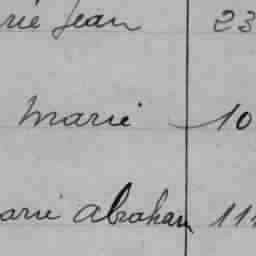 rie Jean 23
Marie 10
arie Abraham 11